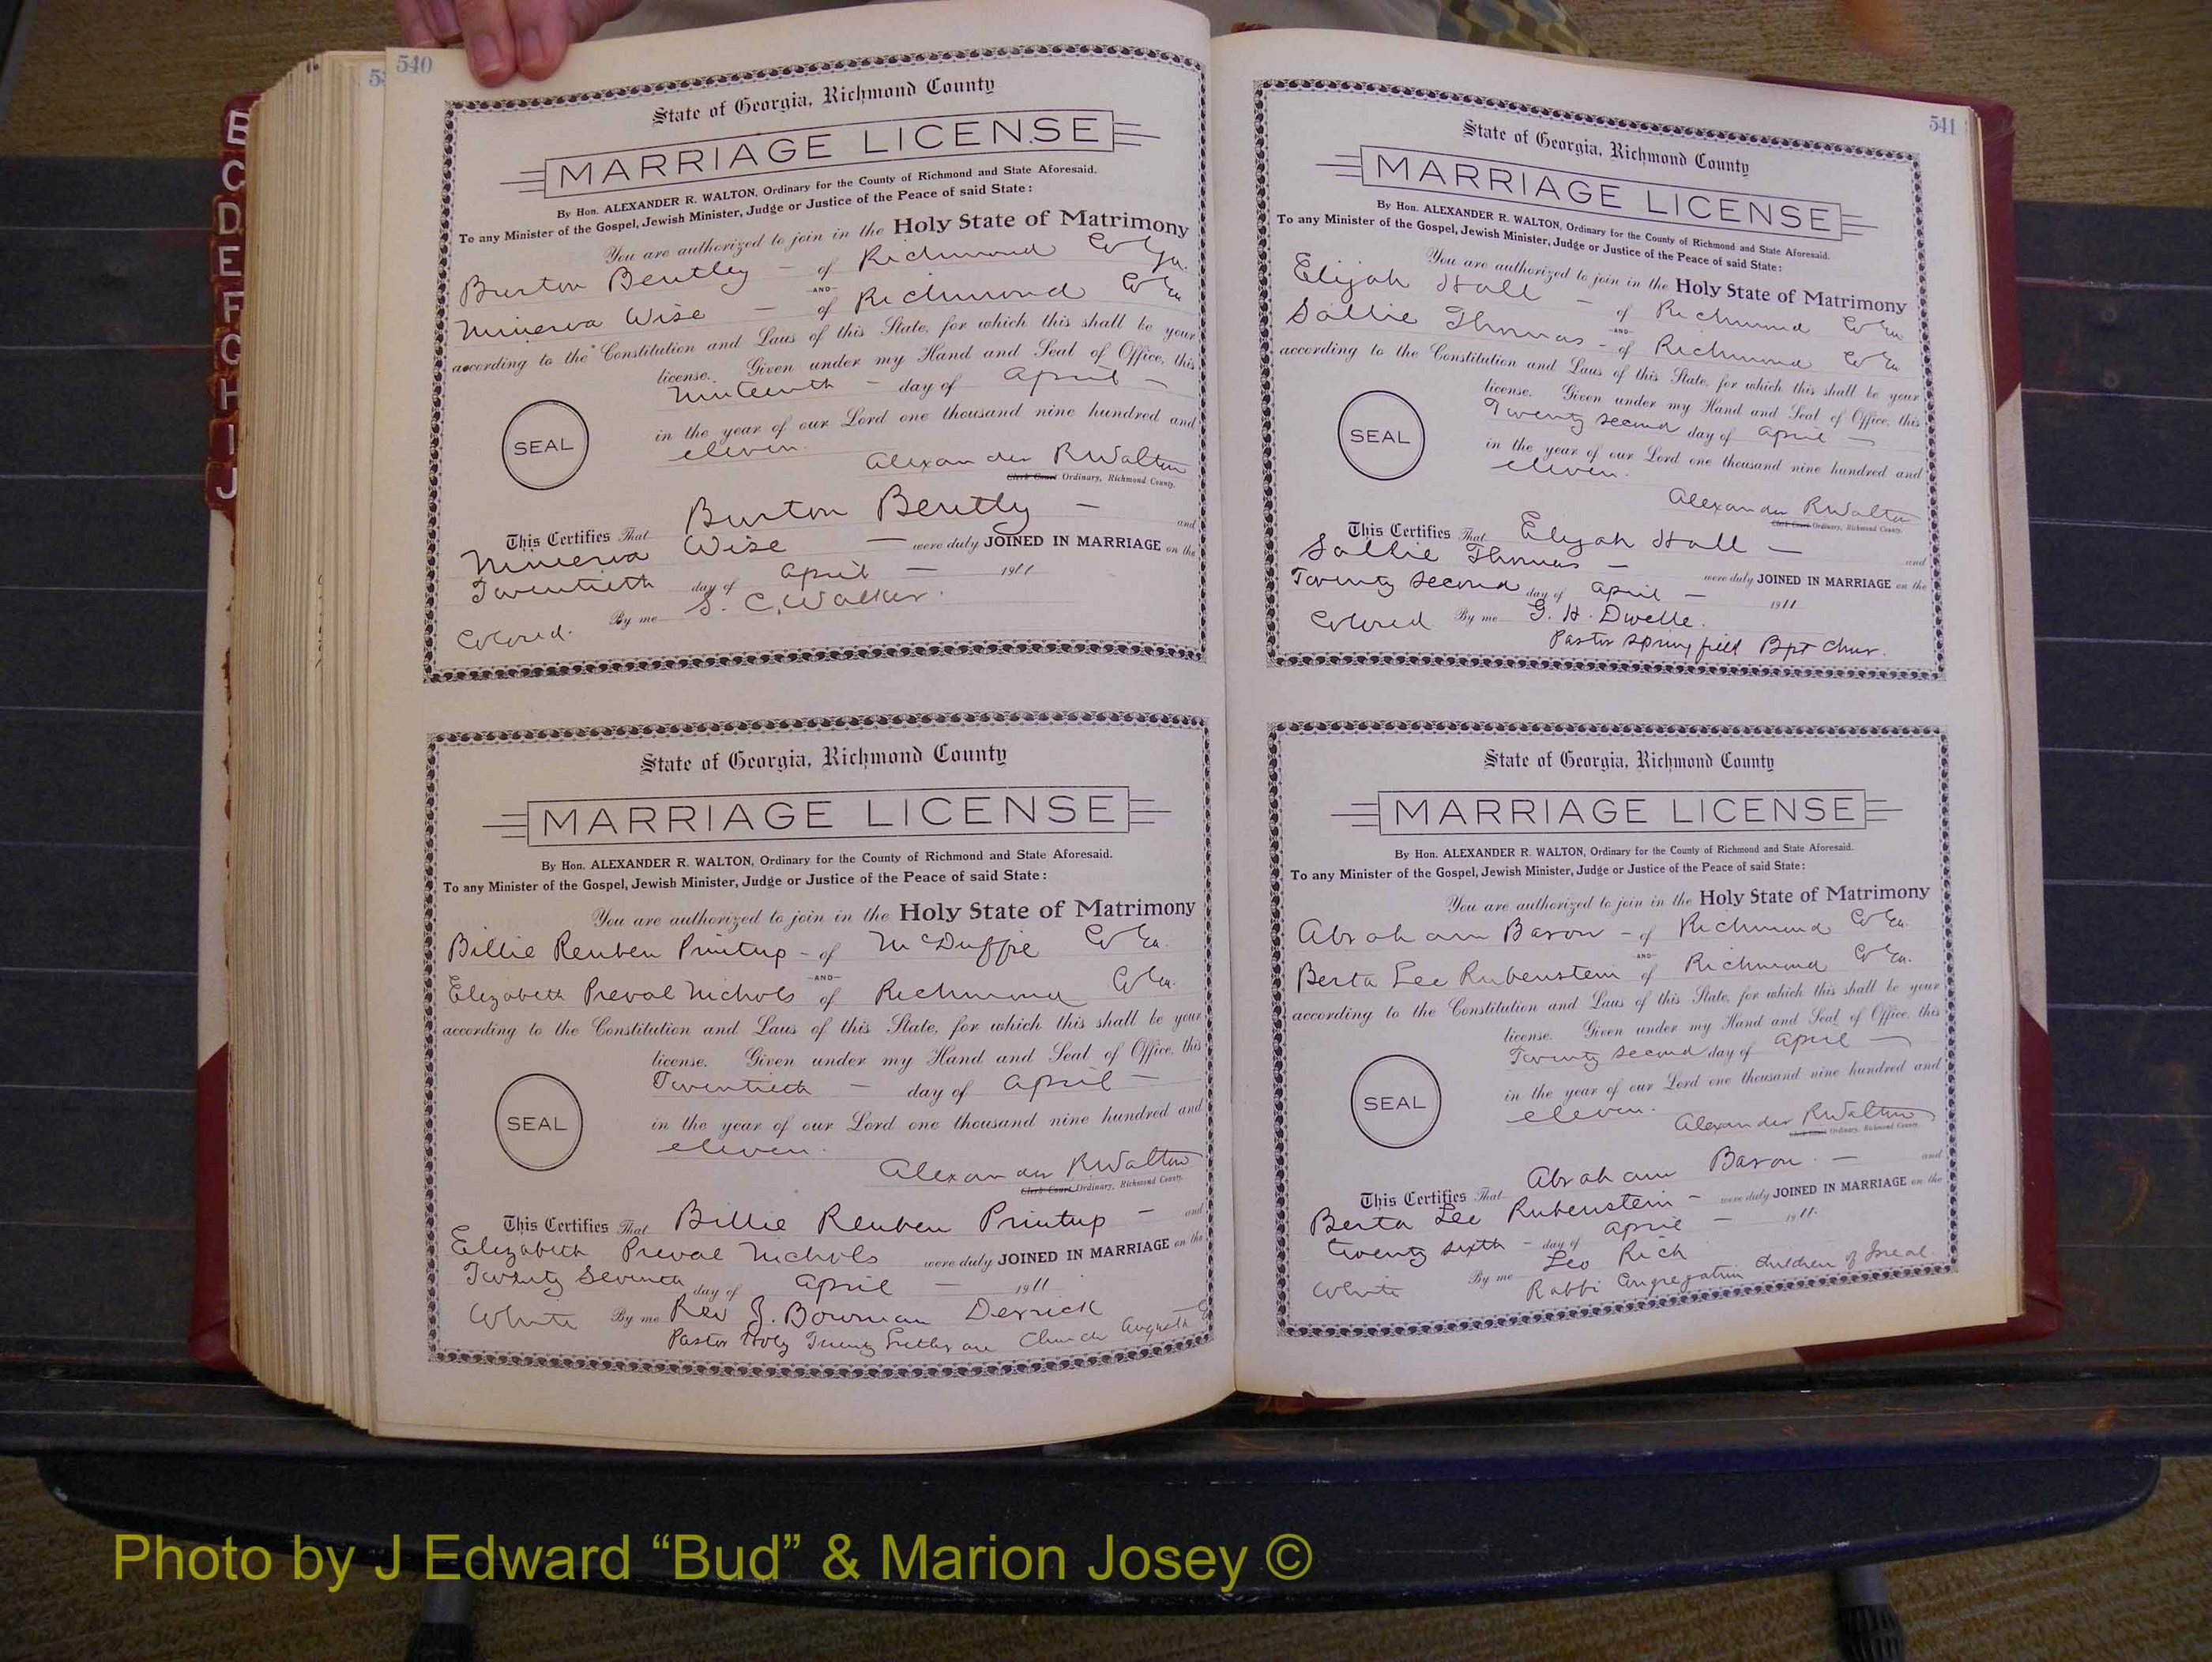 540
State of Georgia, Richmond County
MARRIAGE LICENSE
By Hon. ALEXANDER R. WALTON, Ordinary for the County of Richmond and State Aforesaid.
To any Minister of the Gospel, Jewish Minister, Judge or Justice of the Peace of said State:
You are authorized to join in the Holy State of Matrimony
Burton Bently - of Richmond Co Ga.
-AND-
Minerva Wise - of Richmond Co Ga
according to the Constitution and Laws of this State, for which this shall be your
license. Given under my Hand and Seal of Office, this
Ninteenth - day of April -
SEAL
in the year of our Lord one thousand nine hundred and
eleven.
Alexander R Walton
Clerk Court Ordinary, Richmond County.
This Certifies That Burton Bently - and
Minerva Wise - were duly JOINED IN MARRIAGE on the
Twentieth day of April - 1911
Colored. By me S. C. Walker.
State of Georgia, Richmond County
MARRIAGE LICENSE
By Hon. ALEXANDER R. WALTON, Ordinary for the County of Richmond and State Aforesaid.
To any Minister of the Gospel, Jewish Minister, Judge or Justice of the Peace of said State:
You are authorized to join in the Holy State of Matrimony
Billie Reuben Printup - of McDuffie Co Ga.
-AND-
Elizabeth Preval Nichols of Richmond Co Ga.
according to the Constitution and Laws of this State, for which this shall be your
license. Given under my Hand and Seal of Office, this
Twentieth - day of April -
SEAL
in the year of our Lord one thousand nine hundred and
eleven.
Alexander R Walton
Clerk Court Ordinary, Richmond County.
This Certifies That Billie Reuben Printup - and
Elizabeth Preval Nichols were duly JOINED IN MARRIAGE on the
Twenty Seventh day of April - 1911
White By me Rev J. Bowman Derrick
Pastor Holy Church Augusta
541
State of Georgia, Richmond County
MARRIAGE LICENSE
By Hon. ALEXANDER R. WALTON, Ordinary for the County of Richmond and State Aforesaid.
To any Minister of the Gospel, Jewish Minister, Judge or Justice of the Peace of said State:
You are authorized to join in the Holy State of Matrimony
Elijah Hall - of Richmond Co Ga
-AND-
Sallie Thomas - of Richmond Co Ga
according to the Constitution and Laws of this State, for which this shall be your
license. Given under my Hand and Seal of Office, this
Twenty second day of April -
SEAL
in the year of our Lord one thousand nine hundred and
eleven.
Alexander R Walton
Clerk Court Ordinary, Richmond County.
This Certifies That Elijah Hall - and
Sallie Thomas - were duly JOINED IN MARRIAGE on the
Twenty second day of April - 1911
Colored By me G. H. Dwelle.
Pastor Spring field Bpt Chur.
State of Georgia, Richmond County
MARRIAGE LICENSE
By Hon. ALEXANDER R. WALTON, Ordinary for the County of Richmond and State Aforesaid.
To any Minister of the Gospel, Jewish Minister, Judge or Justice of the Peace of said State:
You are authorized to join in the Holy State of Matrimony
Abraham Baron - of Richmond Co Ga.
-AND-
Berta Lee Rubenstein of Richmond Co Ga.
according to the Constitution and Laws of this State, for which this shall be your
license. Given under my Hand and Seal of Office, this
Twenty second day of April -
SEAL
in the year of our Lord one thousand nine hundred and
eleven.
Alexander R Walton
Clerk Court Ordinary, Richmond County
This Certifies That Abraham Baron - and
Berta Lee Rubenstein - were duly JOINED IN MARRIAGE on the
twenty sixth - day of April - 1911
White By me Leo Rich
Rabbi Congregation Children of Isreal.
B
C
D
E
F
G
H
I
J
Photo by J Edward “Bud” & Marion Josey ©